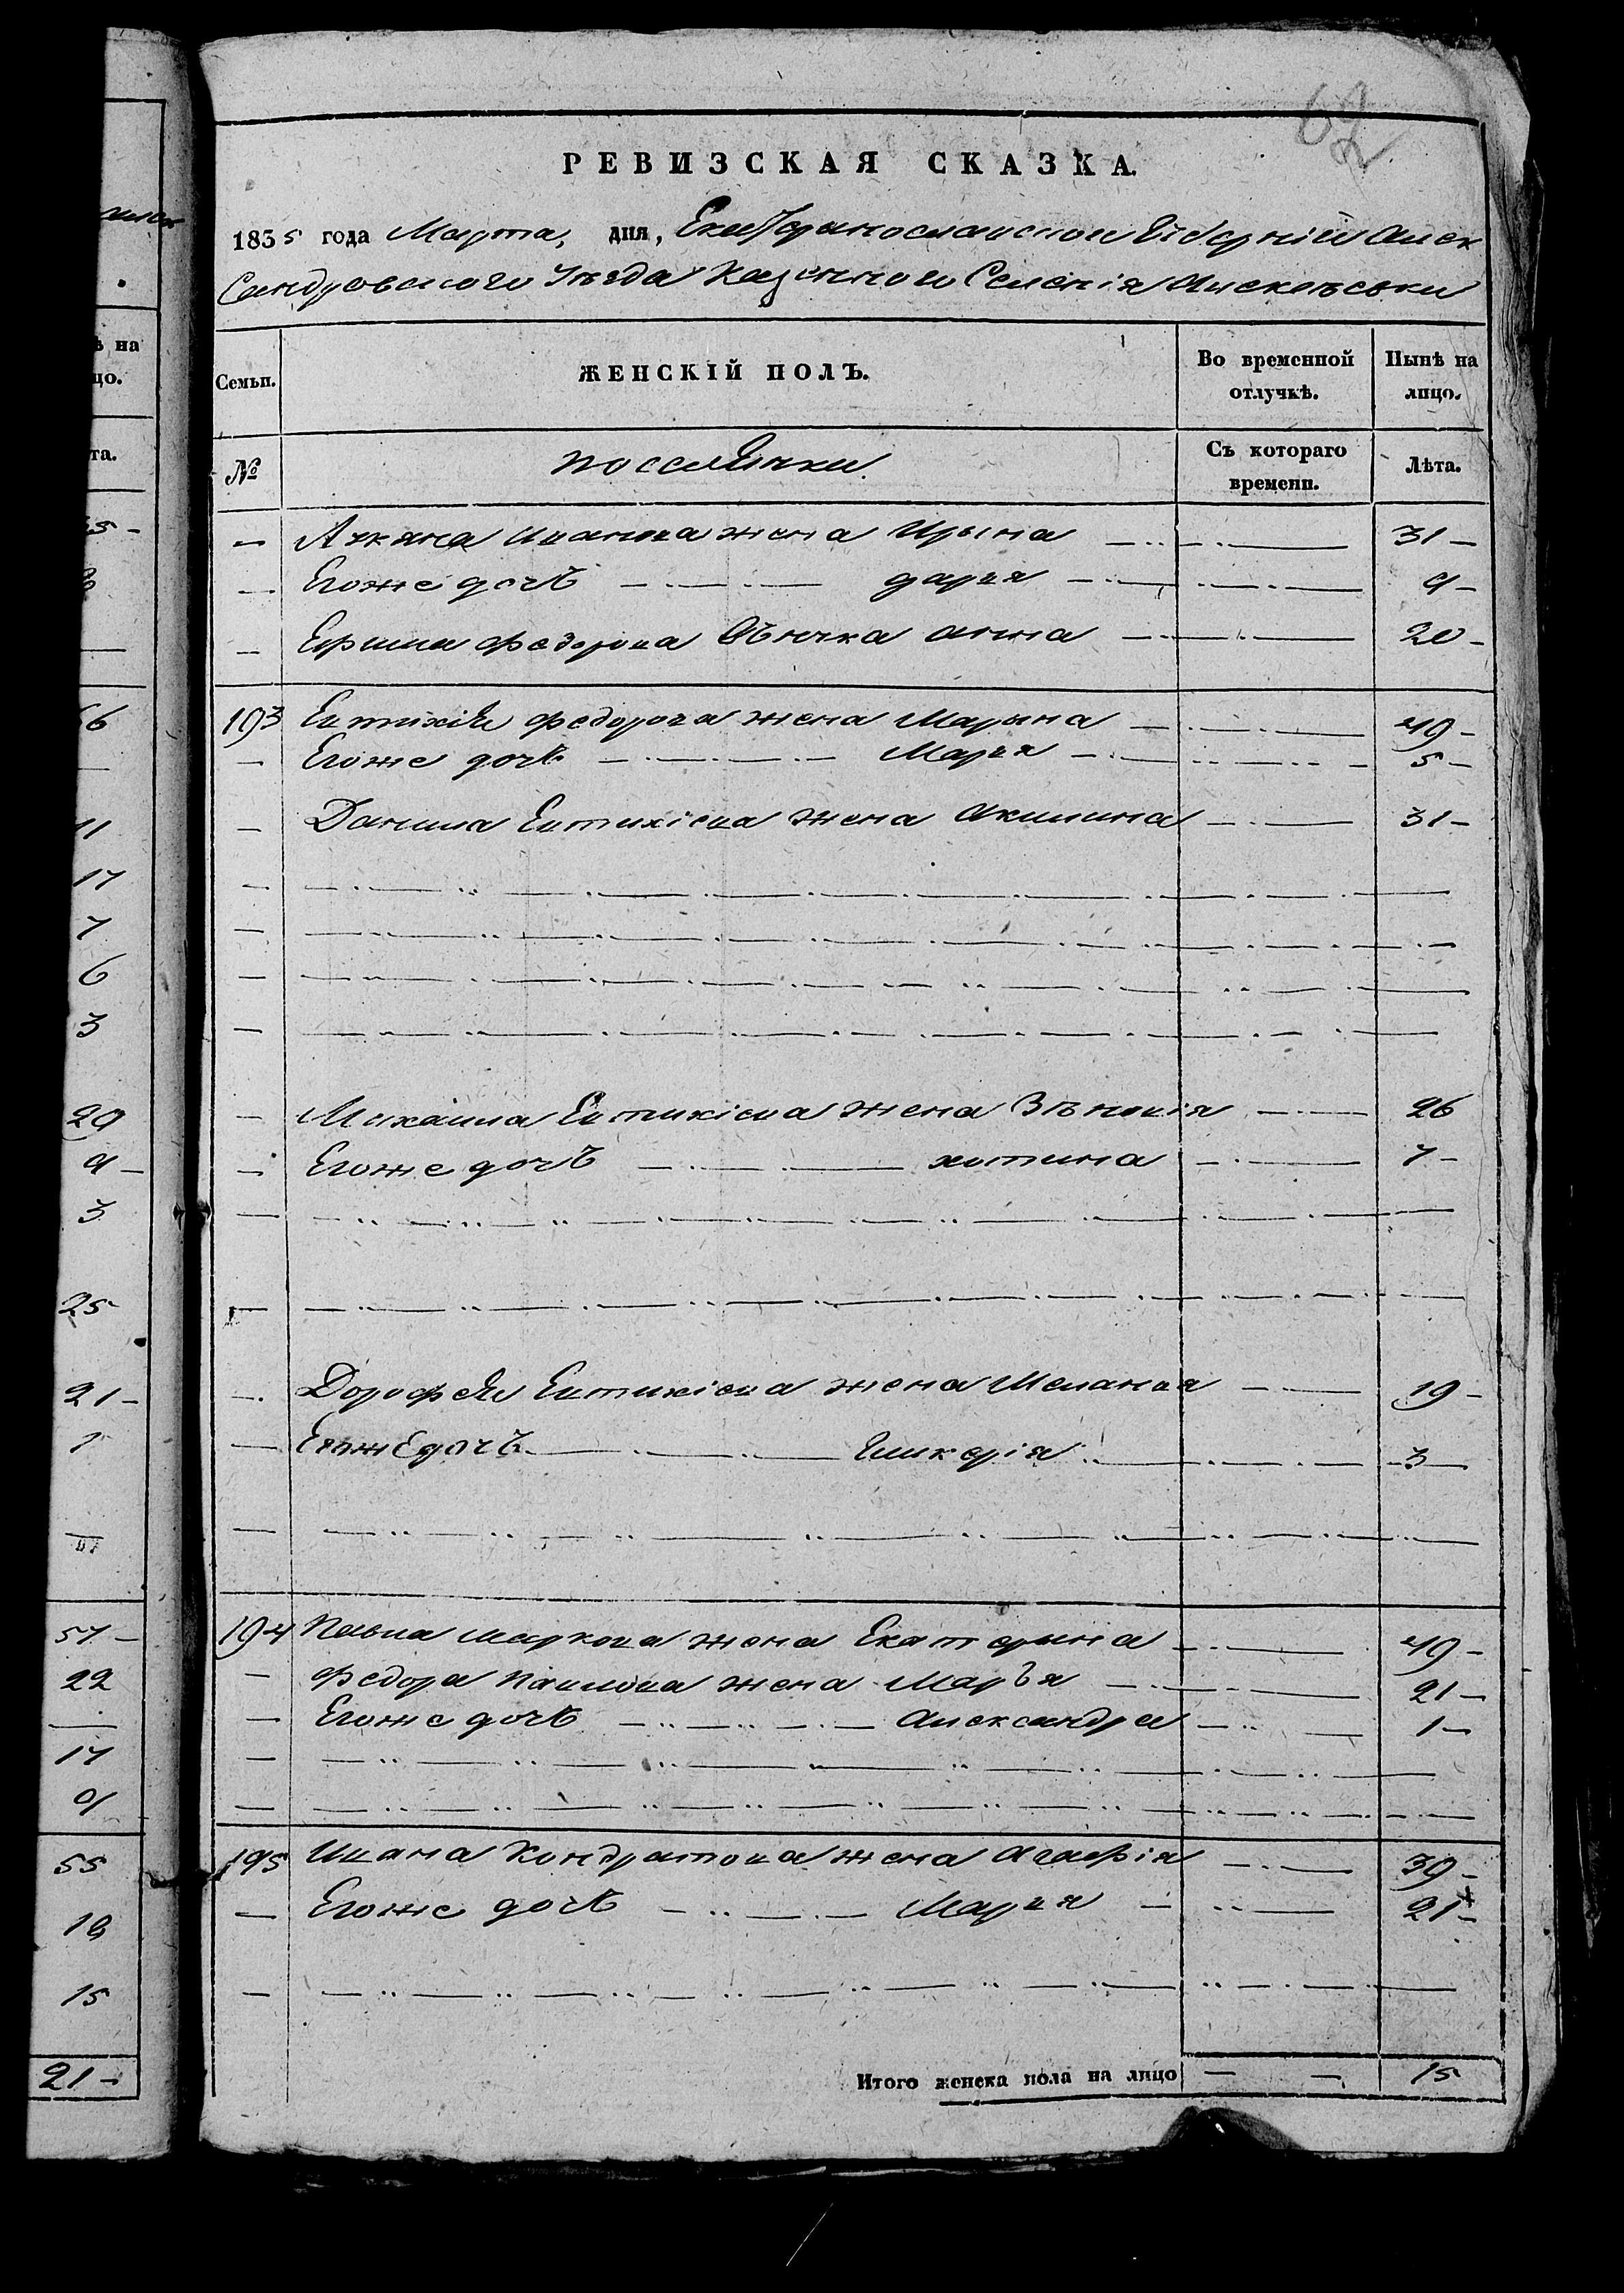 62
РЕВИЗСКАЯ СКАЗКА.
1835 года Марта, дня, Екатеринославской Губернии Алек
сандровского Уезда Казенного Селения
Семьи.
ЖЕНСКІЙ ПОЛЪ.
Во временной отлучкѣ.
Нынѣ на лицо.
№
поселянки
Съ котораго времени.
Лѣта.
Ивана жена Ирына 31
Егоже дочь дария 9
Федорова анна 20
193 Евтихія федорова жена Марына 49
Егоже дочь Мария 5
Данила Евтихіева жена Акилина 31
Михаила Евтихіева жена Зѣновия 26
Егоже дочь хотина 7
Дорофея Евтихіева жена Мелания 19
Егоже дочь Гликерія 3
194 Павла Маркова жена Екатерына 49
Федора Павлова жена Марья 21
Егоже дочь Александра 1
195 Ивана Кондратова жена Агафия 39
Егоже дочь Мария 21
Итого женска пола на лицо 15